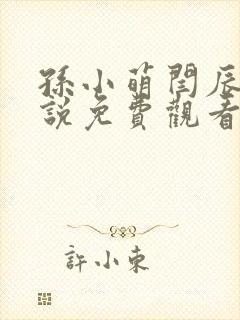 孫小萌閆辰
說免費觀看
許小東